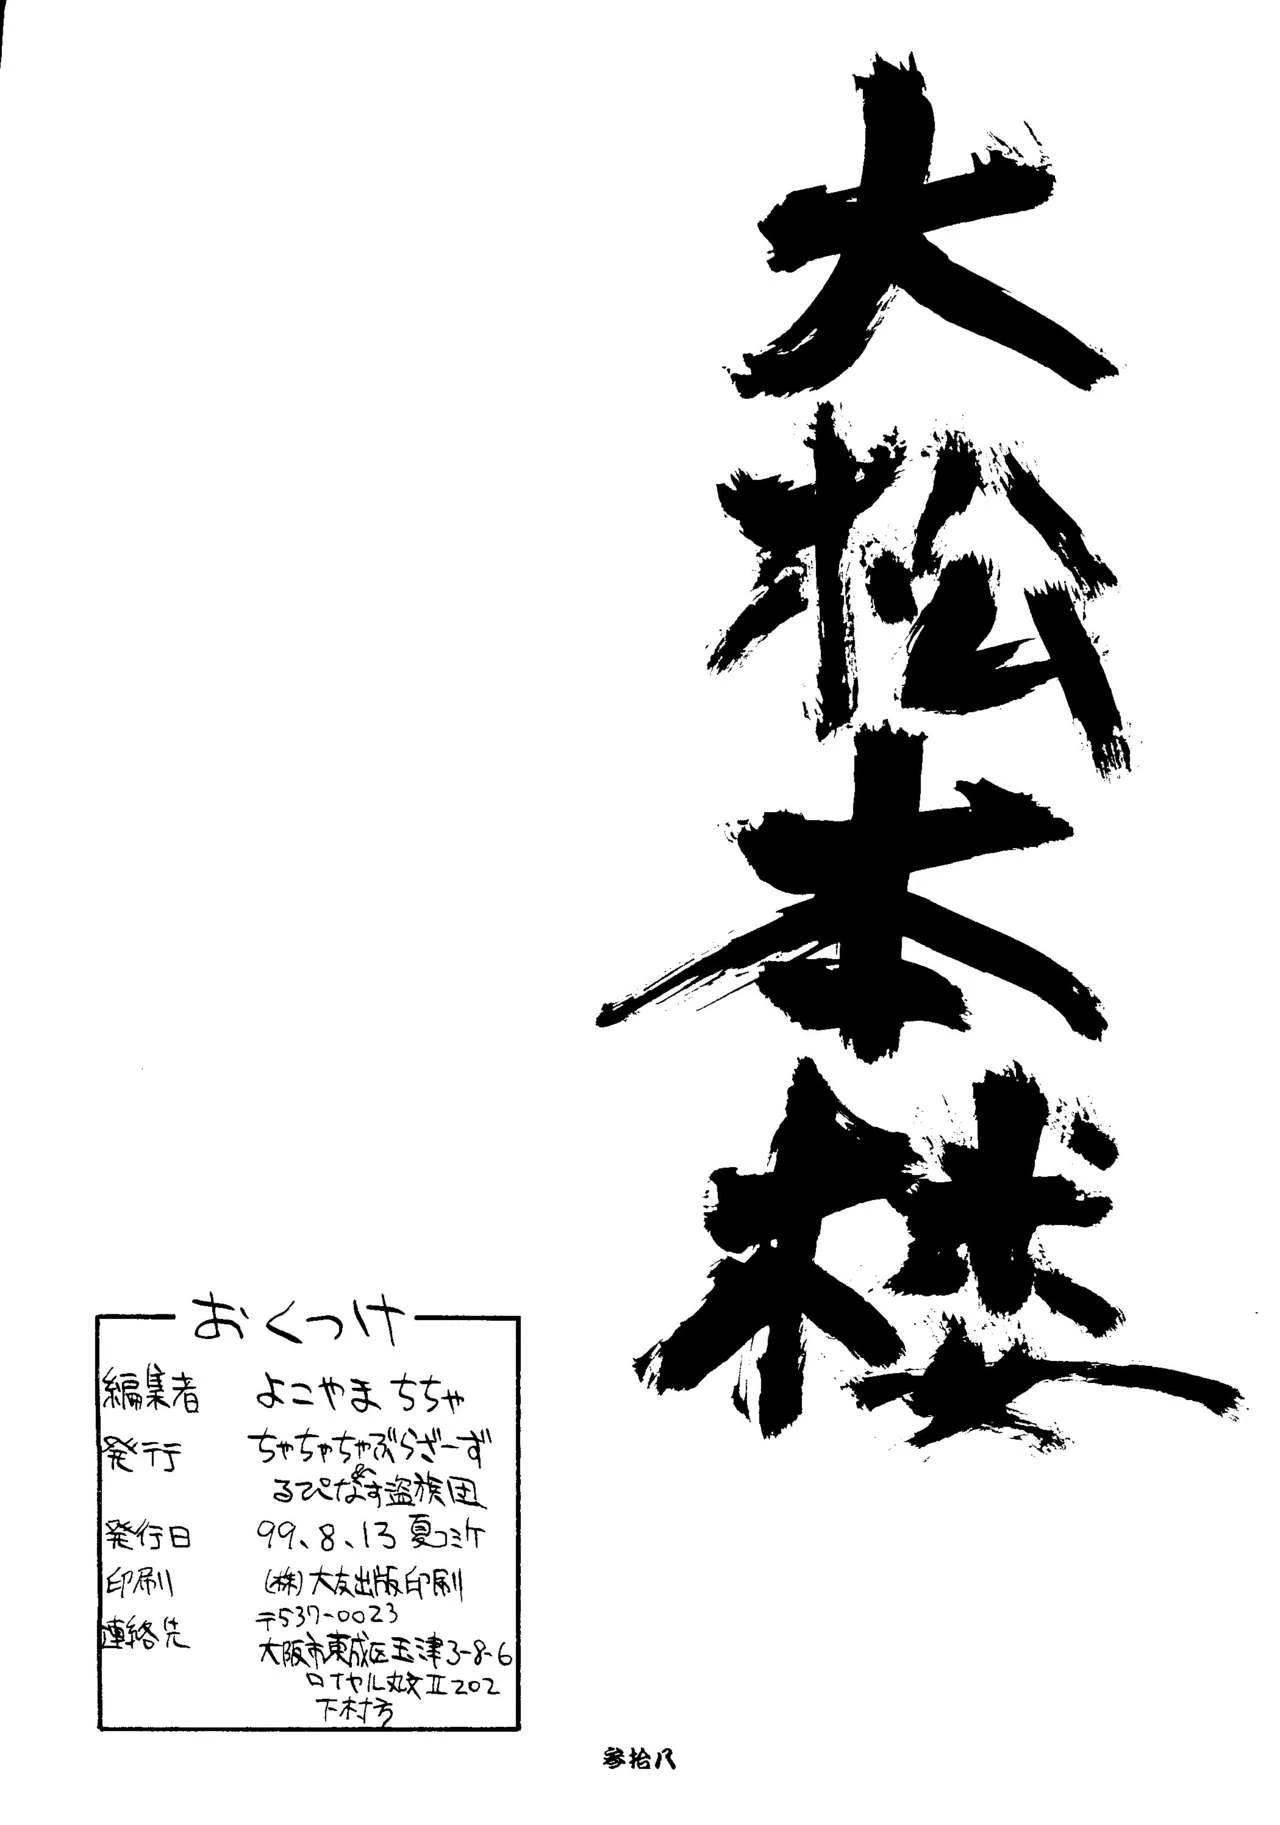 大松本楼
おくづけ
編集者 よこやま ちちゃ
発行 ちゃちゃちゃぶらざーず
&
るぴなす盗族団
発行日 99.8.13 夏コミケ
印刷 (株)大友出版印刷
連絡先 〒537-0023
大阪市東成区玉津3-8-6
ロイヤル丸文II202
下村方
参拾八